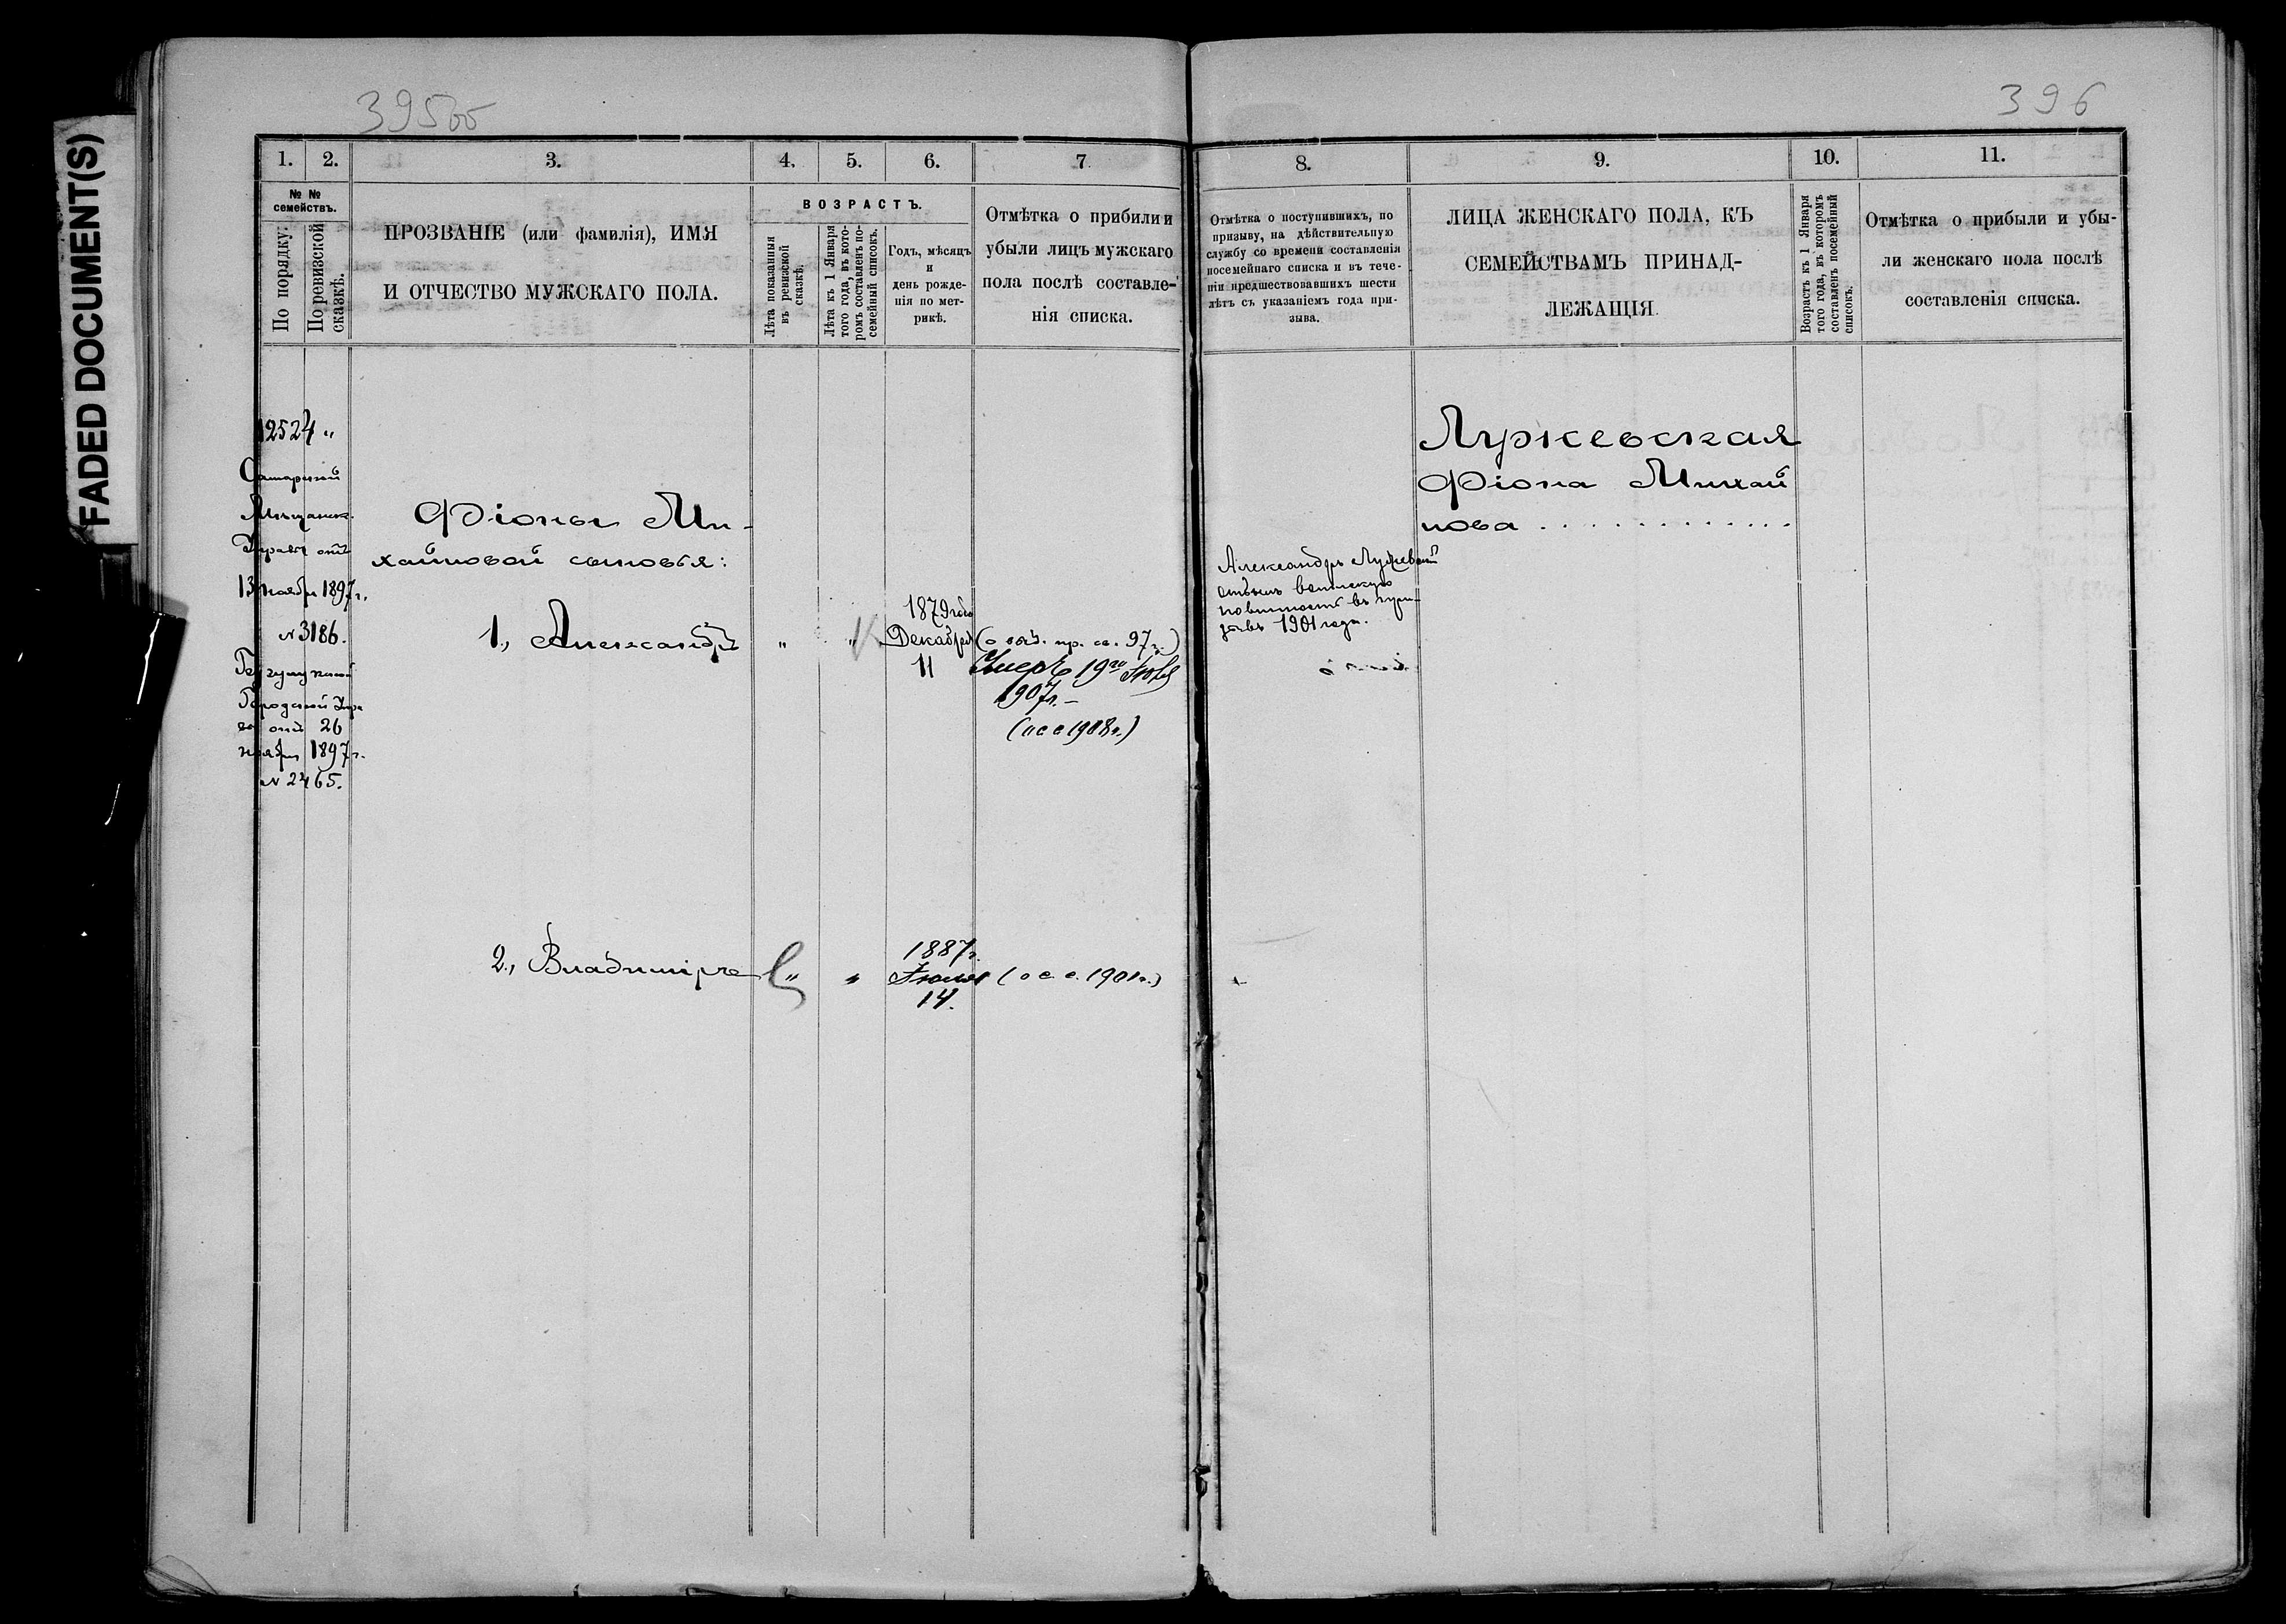 FADED DOCUMENT(S)
395об
396
1. 2. 3. 4. 5. 6. 7.
№ № семействъ.
По порядку.
По ревизской сказкѣ.
ПРОЗВАНІЕ (или фамилія), ИМЯ
И ОТЧЕСТВО МУЖСКАГО ПОЛА.
ВОЗРАСТЪ.
Лѣта показанія
въ ревизской
сказкѣ.
Лѣта къ 1 Января
того года, въ кото-
ромъ составленъ по-
семейный списокъ.
Годъ, мѣсяцъ
и
день рожде-
нія по мет-
рикѣ.
Отмѣтка о прибыли и
убыли лицъ мужскаго
пола послѣ составле-
нія списка.
8. 9. 10. 11.
Отмѣтка о поступившихъ, по
призыву, на дѣйствительную
службу со времени составленія
посемейнаго списка и въ тече-
ніи предшествовавшихъ шести
лѣтъ съ указаніемъ года при-
зыва.
ЛИЦА ЖЕНСКАГО ПОЛА, КЪ
СЕМЕЙСТВАМЪ ПРИНАД-
ЛЕЖАЩІЯ.
Возрастъ къ 1 Января
того года, въ которомъ
составленъ посемейный
списокъ.
Отмѣтка о прибыли и убы-
ли женскаго пола послѣ
составленія списка.
12524 "
Самарской
Мѣщанск.
Управы отъ
13 ноября 1897 г.
№ 3186.
Бугурусланской
Городской Упра
вы отъ 26
ноября 1897 г.
№ 2465.
Фіоны Ми-
хайловой сыновья:
1., Александръ " "
1879 года
Декабря
11
97 г.)
Умеръ 19го
1907 г. –
1908 г.)
2., Владиміръ " "
1887 г.
Іюля
14.
(о с. с. 1901 г.)
Александръ Лужевскій
отбылъ воинскую
повинность въ при-
зывъ 1901 года.
Лужевская
Фіона Михай
лова . . . . . . . . . . . . .